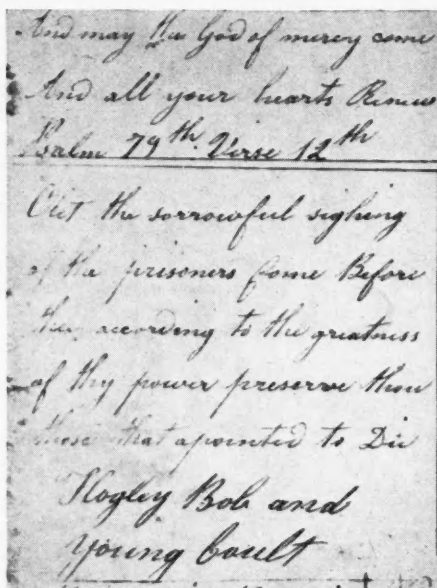 And may the God of mercy come
And all your hearts Renew
Psalm 79th Verse 12th
O let the sorrowful sighing
of the prisoners Come Before
thee according to the greatness
of thy power preserve thou
those that apointed to Die
Hogley Bob and
young Coult